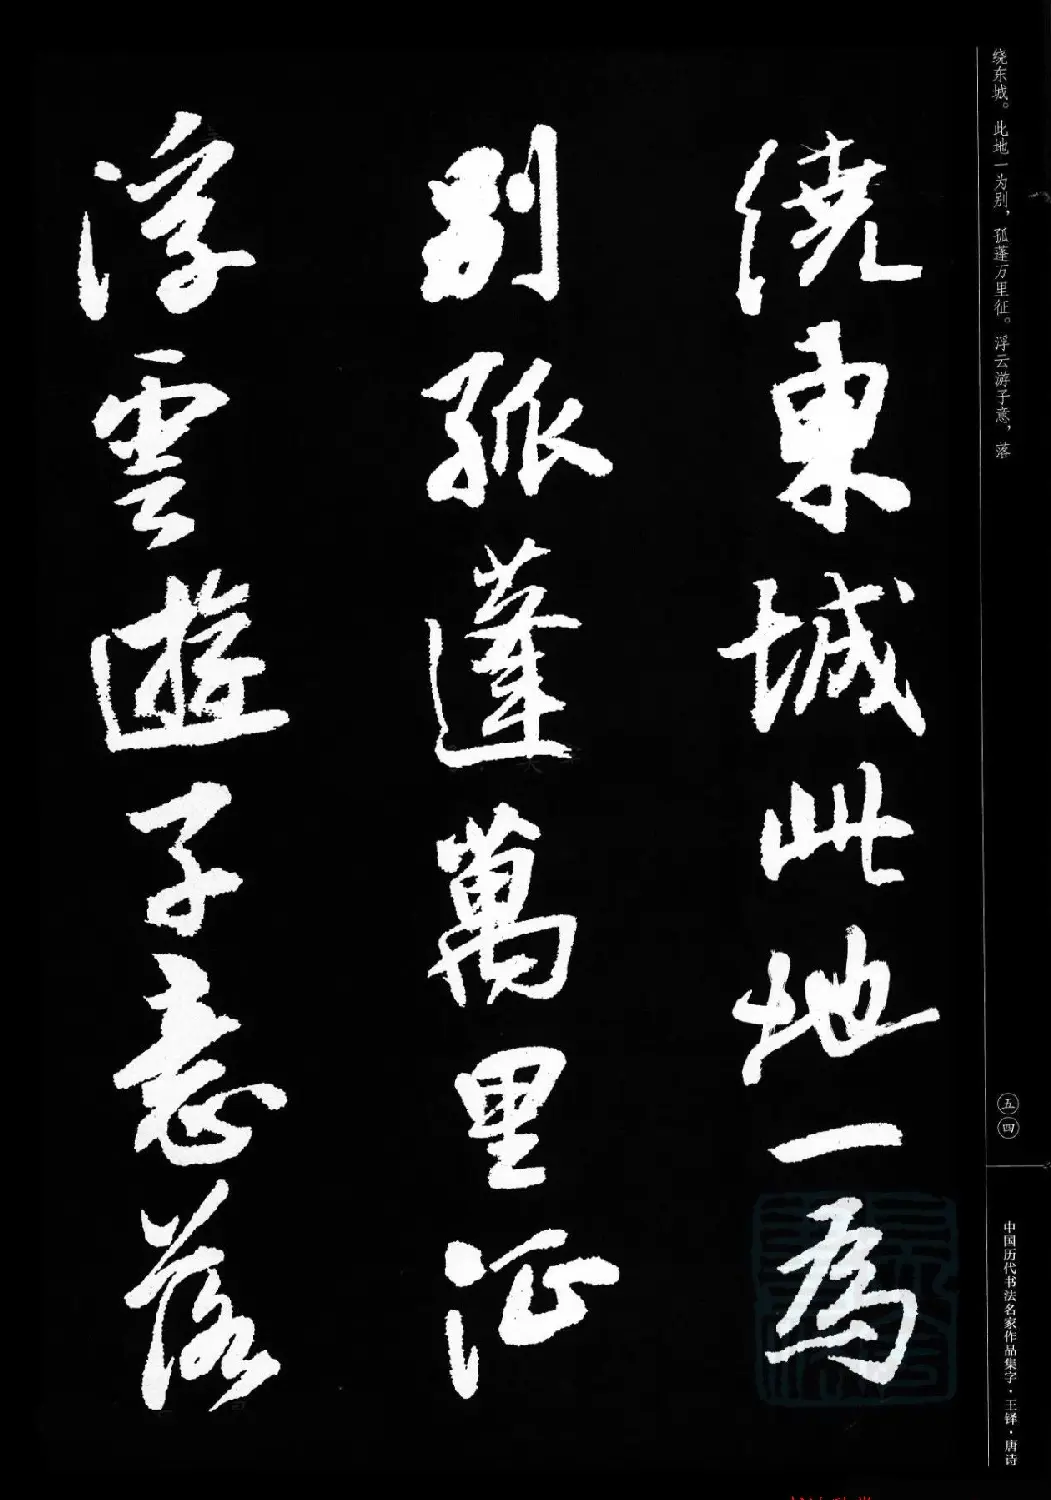 绕东城。此地一为别，孤蓬万里征。浮云游子意，落
繞東城此地一為
別孤蓬萬里征
浮雲遊子意落
五四
中国历代书法名家作品集字·王铎·唐诗